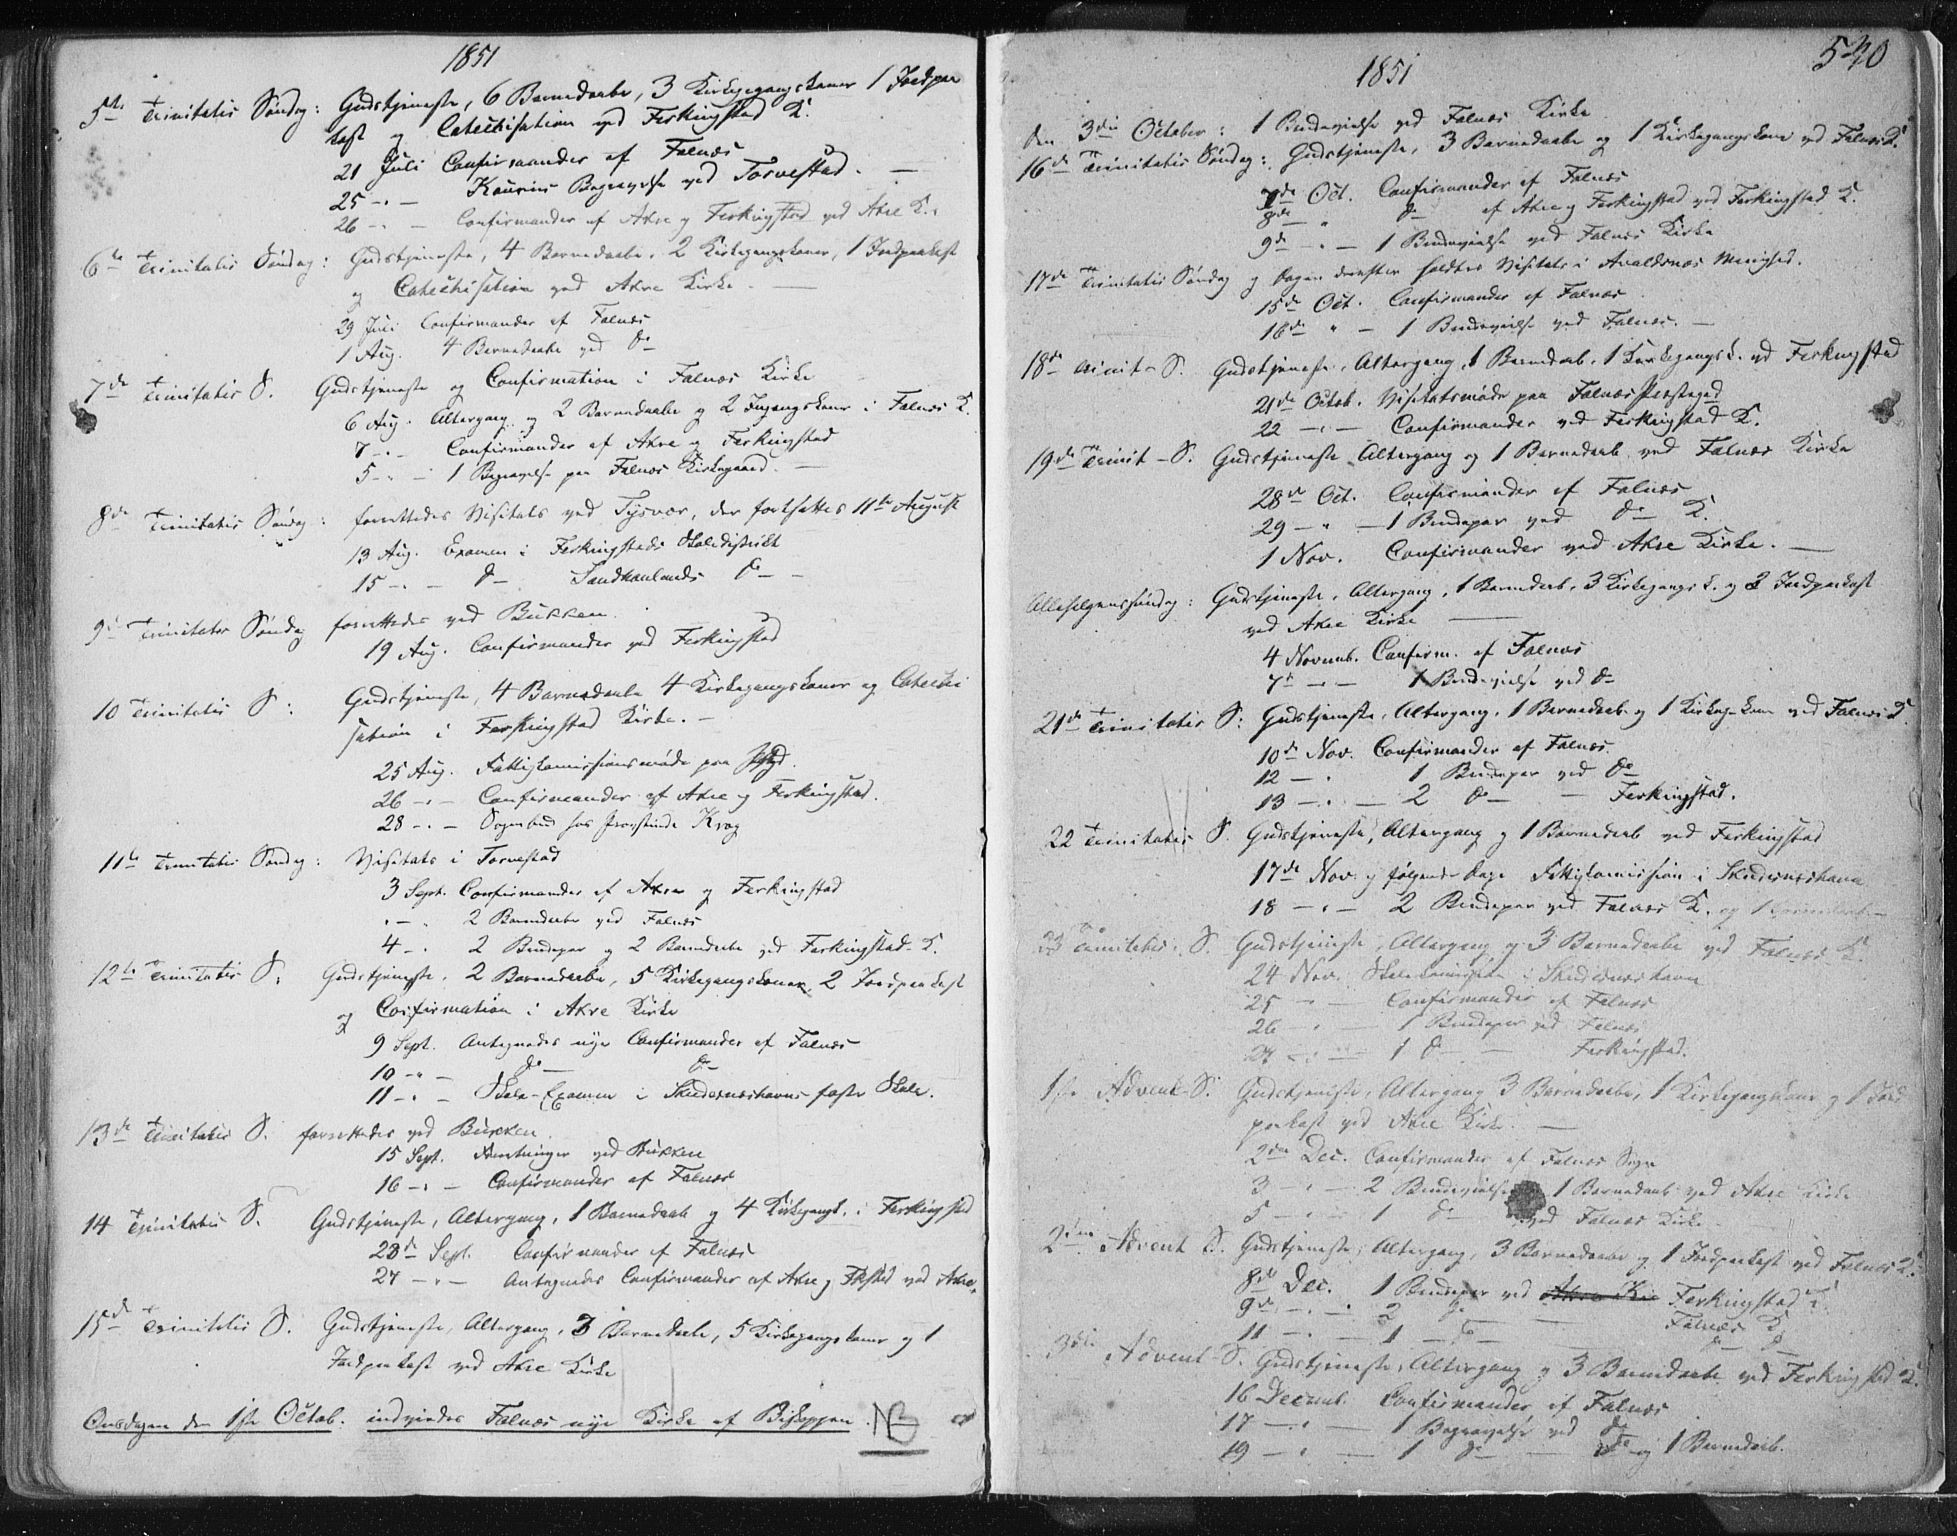 1851
5te Trinitatis Søndag: Gudstjeneste, 6 Barnedaabe, 3 Kirkegangskoner 1 Jordpaa
kast og Catechisation ved Ferkingstad K.
21 Juli Confirmander af Falnæs
25 -"- Begravelse ved Torvestad. —
26 -"- Confirmander af Akre og Ferkingstad ved Akre K.
6te Trinitatis Søndag: Gudstjeneste, 4 Barnedaabe, 2 Kirkegangskoner, 1 Jordpaakast
og Catechisation ved Akre Kirke. —
29 Juli Confirmander af Falnæs
1 Aug. 4 Barnedaabe ved do
7de Trinitatis S. Gudstjeneste og Confirmation i Falnæs Kirke
6 Aug. Altergang og 2 Barnedaabe og 2 Ingangskoner i Falnæs K.
7 -"- Confirmander af Akre og Ferkingstad
5 -"- 1 Begravelse paa Falnæs Kirkegaard. —
8de Trinitatis Søndag: forrettedes Visitats ved Tysvær, der fortsattes 11te August
13 Aug. Examen i Ferkingstads Skoledistrikt
15 -"- do Sandhaulands do -
9de Trinitatis Søndag forrettedes ved Bukken.
19 Aug. Confirmander ved Ferkingstad
10 Trinitatis S: Gudstjeneste, 4 Barnedaabe 4 Kirkegangskoner og Catechi
sation i Ferkingstad Kirke. -
25 Aug. Fattigkomissionsmøde paa
26 -"- Confirmander af Akre og Ferkingstad.
28 -"- Sognebud hos Provstinde Krog
11te Trinitatis Søndag: Visitats i Torvestad
3 Sept. Confirmander af Akre og Ferkingstad
"- " 2 Barnedaabe ved Falnæs
4 -" 2 Brudepar og 2 Barnedaabe ved Ferkingstad K.
12te Trinitatis S: Gudstjeneste, 2 Barnedaabe, 5 Kirkegangskoner, 2 Jordpaakast
og Confirmation i Akre Kirke
9 Sept. Antegnedes nye Confirmander af Falnæs
10 -"- do do
11 -"- Skole-Examen i Skudesneshavns faste Skole.
13de Trinitatis S. forrettedes ved Bukken.
15 Sept. ved Bukken
16 -"- Confirmander af Falnæs
14 Trinitatis S. Gudstjeneste, Altergang, 1 Barnedaab og 4 Kirkegangk. i Ferkingstad
23de Sept. Confirmander af Falnæs
27 -"- Antegnedes Confirmander af Akre og Fkstad ved Akre.
15de Trinitatis S. Gudstjeneste, Altergang, 3 Barnedaabe, 5 Kirkegangskoner og 1
Jordpaakast ved Akre Kirke
Onsdagen den 1ste Octob. indviedes Falnæs nye Kirke af Biskoppen. NB
540
1851
Den 3die October: 1 Brudevielse ved Falnæs Kirke
16de Trinitatis Søndag: Gudstjeneste, 3 Barnedaabe og 1 Kirkegangskone ved Falnæs K.
7de Oct. Confirmander af Falnæs
8de " do af Akre og Ferkingstad ved Ferkingstad K.
9de -"- 1 Brudevielse ved Falnæs Kirke
17de Trinitatis Søndag og Dagen derefter holdtes Visitats i Avaldsnæs Menighed.
15de Oct. Confirmander af Falnæs
16de " - 1 Brudevielse ved Falnæs. —
18de Trinit- S. Gudstjeneste, Altergang, 1 Barnedaab, 1 Kirkegangsk. ved Ferkingstad
21de Octob. Visitatsmøde paa Falnæs Præstegaard
22 -"- Confirmander ved Ferkingstad K.
19de Trinit- S. Gudstjeneste Altergang og 1 Barnedaab ved Falnæs Kirke
28de Oct. Confirmander af Falnæs
29 -"- 1 Brudepar ved do K.
1 Nov. Confirmander ved Akre Kirke. —
Allehelgenssøndag: Gudstjeneste, Altergang, 1 Barnedaab, 3 Kirkegangsk. og 2 Jordpaakast
ved Akre Kirke —
4 Novemb. Confirm. af Falnæs
7de -"- 1 Brudevielse ved do
21de Trinitatis S: Gudstjeneste, Altergang, 1 Barnedaab og 1 Kirkeg-kone ved Falnæs K.
10de Nov. Confirmander af Falnæs.
12 -" 1 Brudepar ved do
13 -"- 2 do - Ferkingstad.
22 Trinitatis S. Gudstjeneste, Altergang og 1 Barnedaab ved Ferkingstad
17de Nov. og følgende Dage Fattigkomission i Skudesneshavn
18 -"- 2 Brudepar ved Falnæs K. og 1 Barnedaab
23 Trinitatis S. Gudstjeneste Altergang og 3 Barnedaabe ved Falnæs K.
24 Nov. Skolekomission i Skudesneshavn
25 -"- Confirmander af Falnæs
26 " 1 Brudepar ved Falnæs
27 -"- 1 do — Ferkingstad.
1ste Advent S. Gudstjeneste, Altergang 3 Barnedaabe, 1 Kirkegangskone og 1 Jord
paakast ved Akre Kirke. —
2den Dec. Confirmander af Falnæs Sogn
3 " - 2 Brudevielse 1 Barnedaab ved Akre Kirke
5 -"- 1 do ved Falnæs Kirke
2den Advent S. Gudstjeneste, Altergang, 3 Barnedaabe og 1 Jordpaakast ved Falnæs K.
8de Dec. 1 Brudepar ved Akre Ki Ferkingstad K.
9de -"- 2 do — Falnæs K
11 -"- 1 do do do
3die Advent S. Gudstjeneste, Altergang og 3 Barnedaabe ved Ferkingstad K.
16 Decemb. Confirmander af Falnæs
17 -"- 1 Begravelse ved do
19 -"- 1 do — do og 1 Barnedaab.